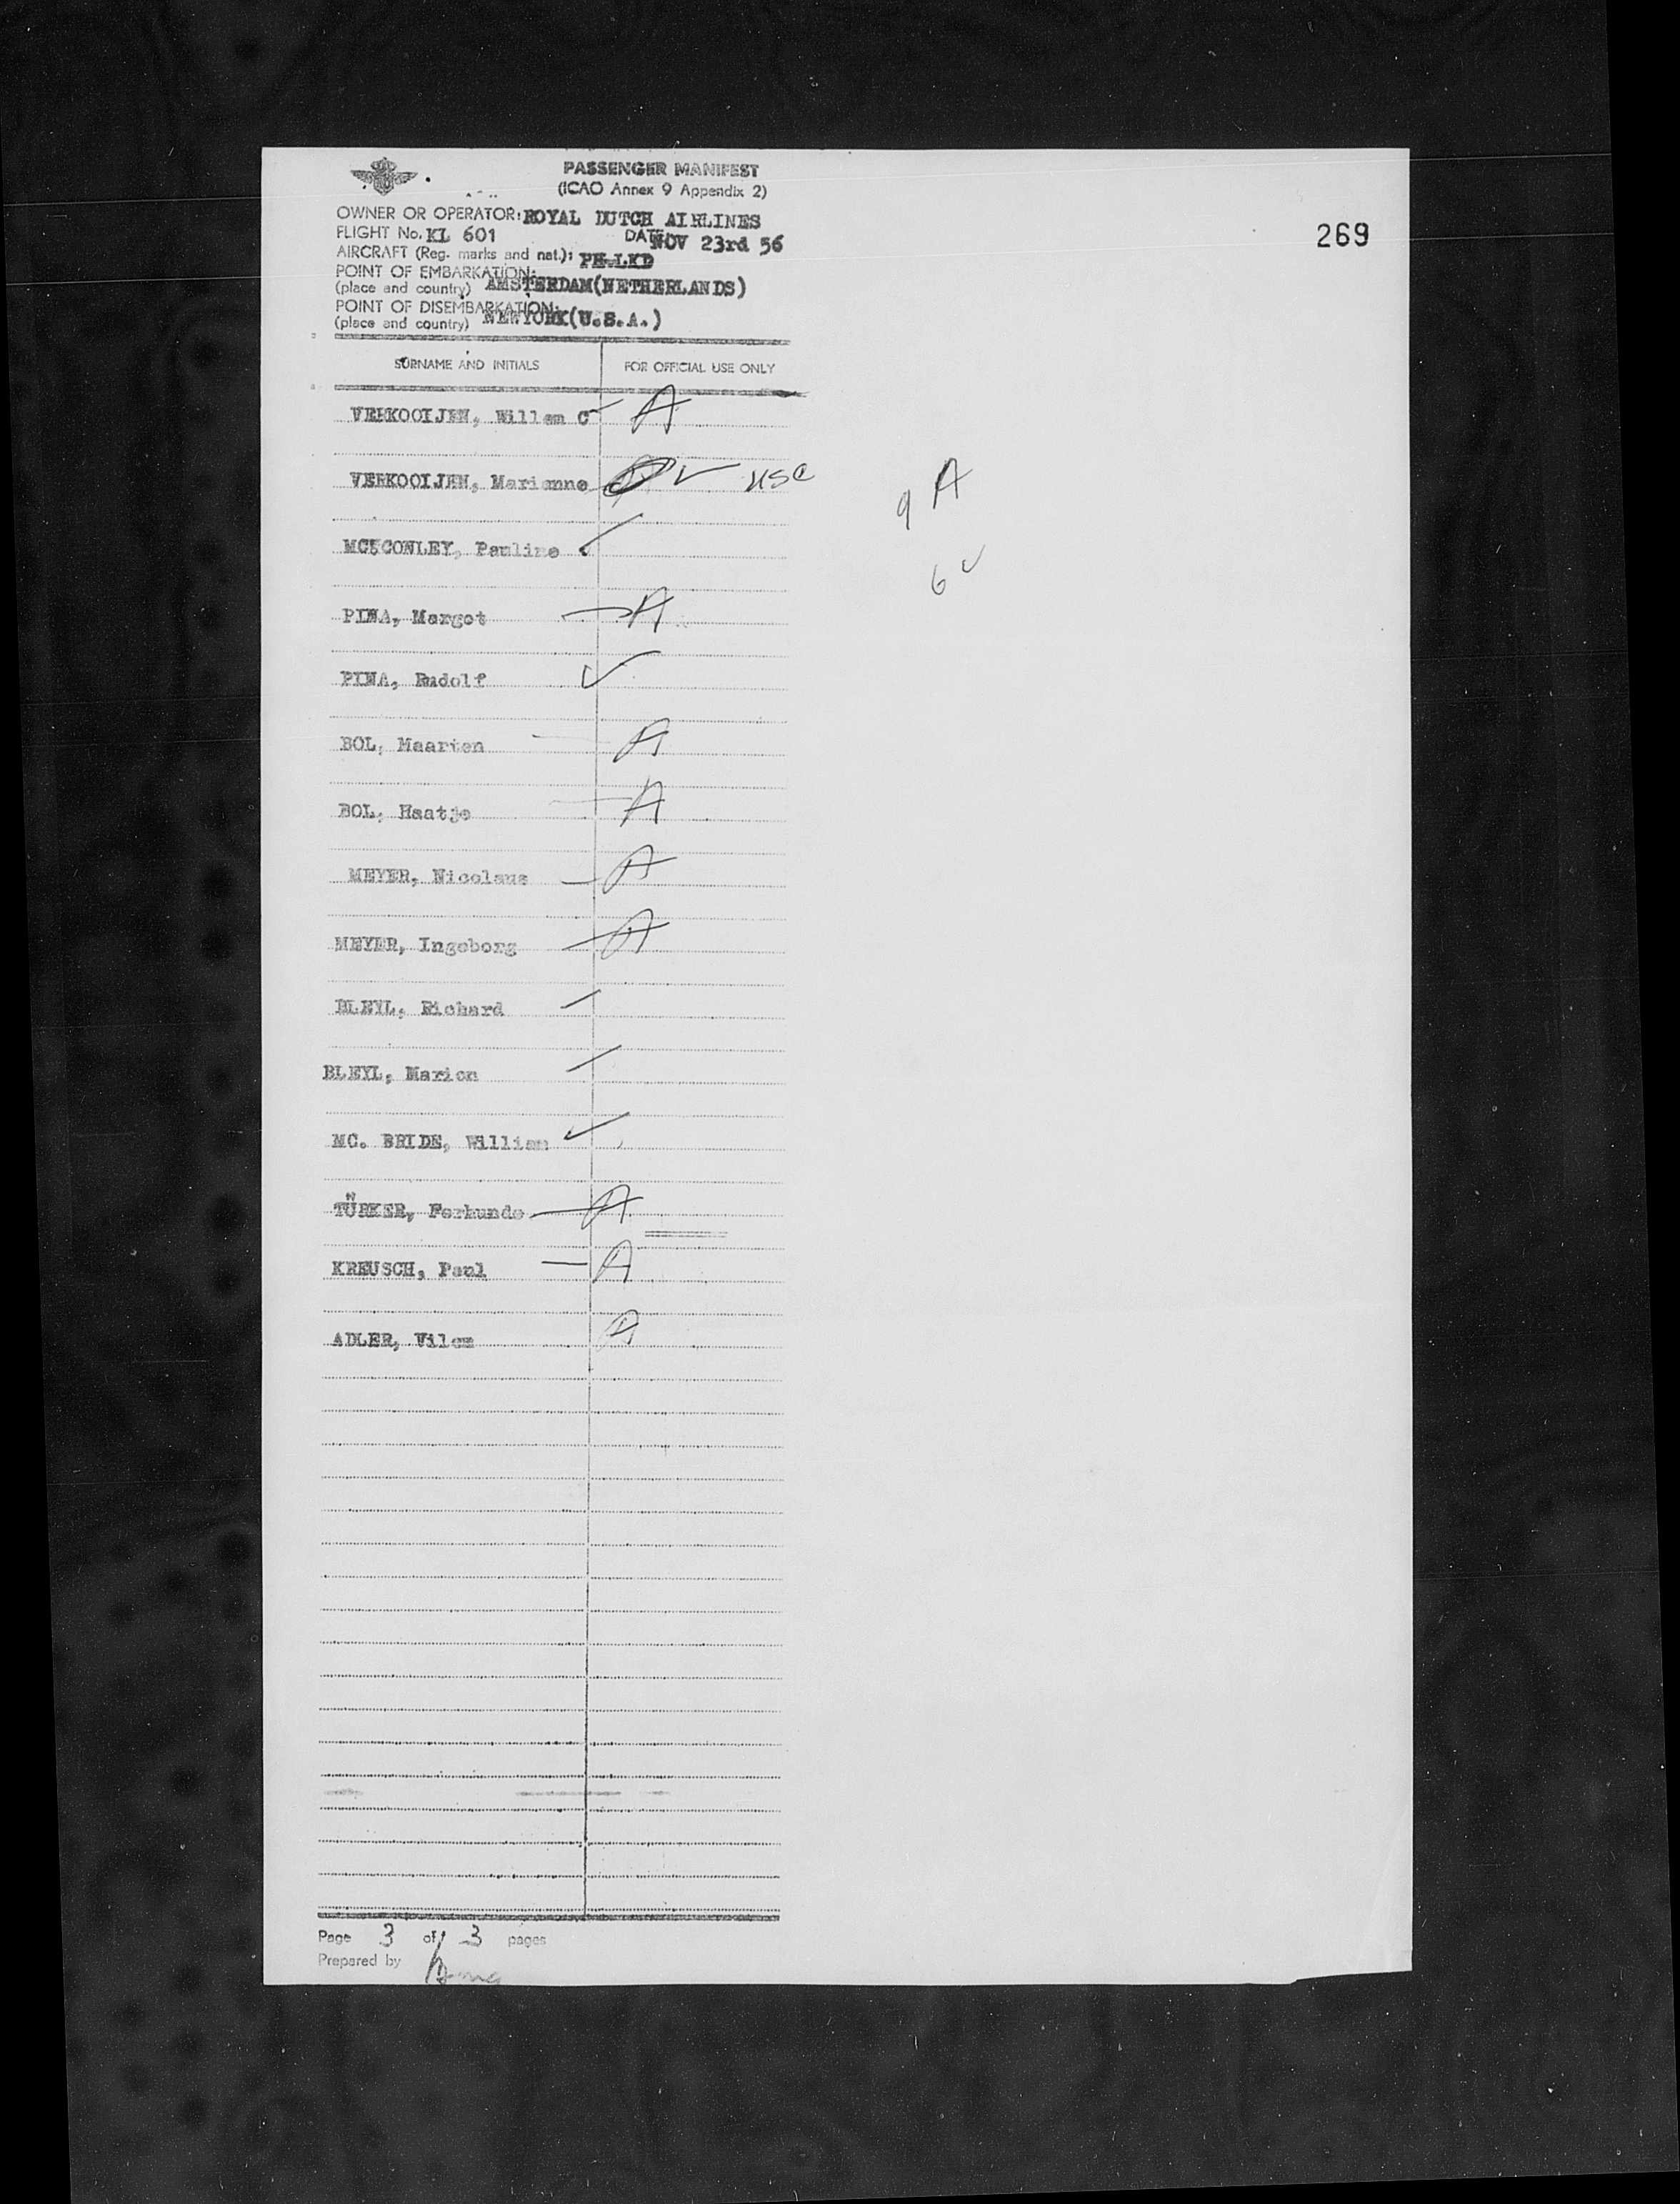 PASSENGER MANIFEST
(ICAO Annex 9 Appendix 2)
OWNER OR OPERATOR: ROYAL DUTCH AIRLINES
269
FLIGHT No. KL 601 DATE NOV 23rd 56
AIRCRAFT (Reg. marks and nat.): PH-LKD
POINT OF EMBARKATION:
(place and country) AMSTERDAM(NETHERLANDS)
POINT OF DISEMBARKATION:
(place and country) NEWYORK(U.S.A.)
SURNAME AND INITIALS FOR OFFICIAL USE ONLY
VERKOOIJEN, Willem C A
VERKOOIJEN, Marianne ✓ USC
9 A
CONLEY, Pauline ✓
6 ✓
PINA, Margot A
PINA, Rudolf ✓
BOL, Maarten A
BOL, Haatje A
MEYER, Nicolaus A
MEYER, Ingeborg A
BLEYL, Richard
BLEYL, Marion
MC. BRIDE, William ✓
TÜRKER, Ferhunde A
KREUSCH, Paul A
ADLER, Vilem A
Page 3 of 3 pages
Prepared by